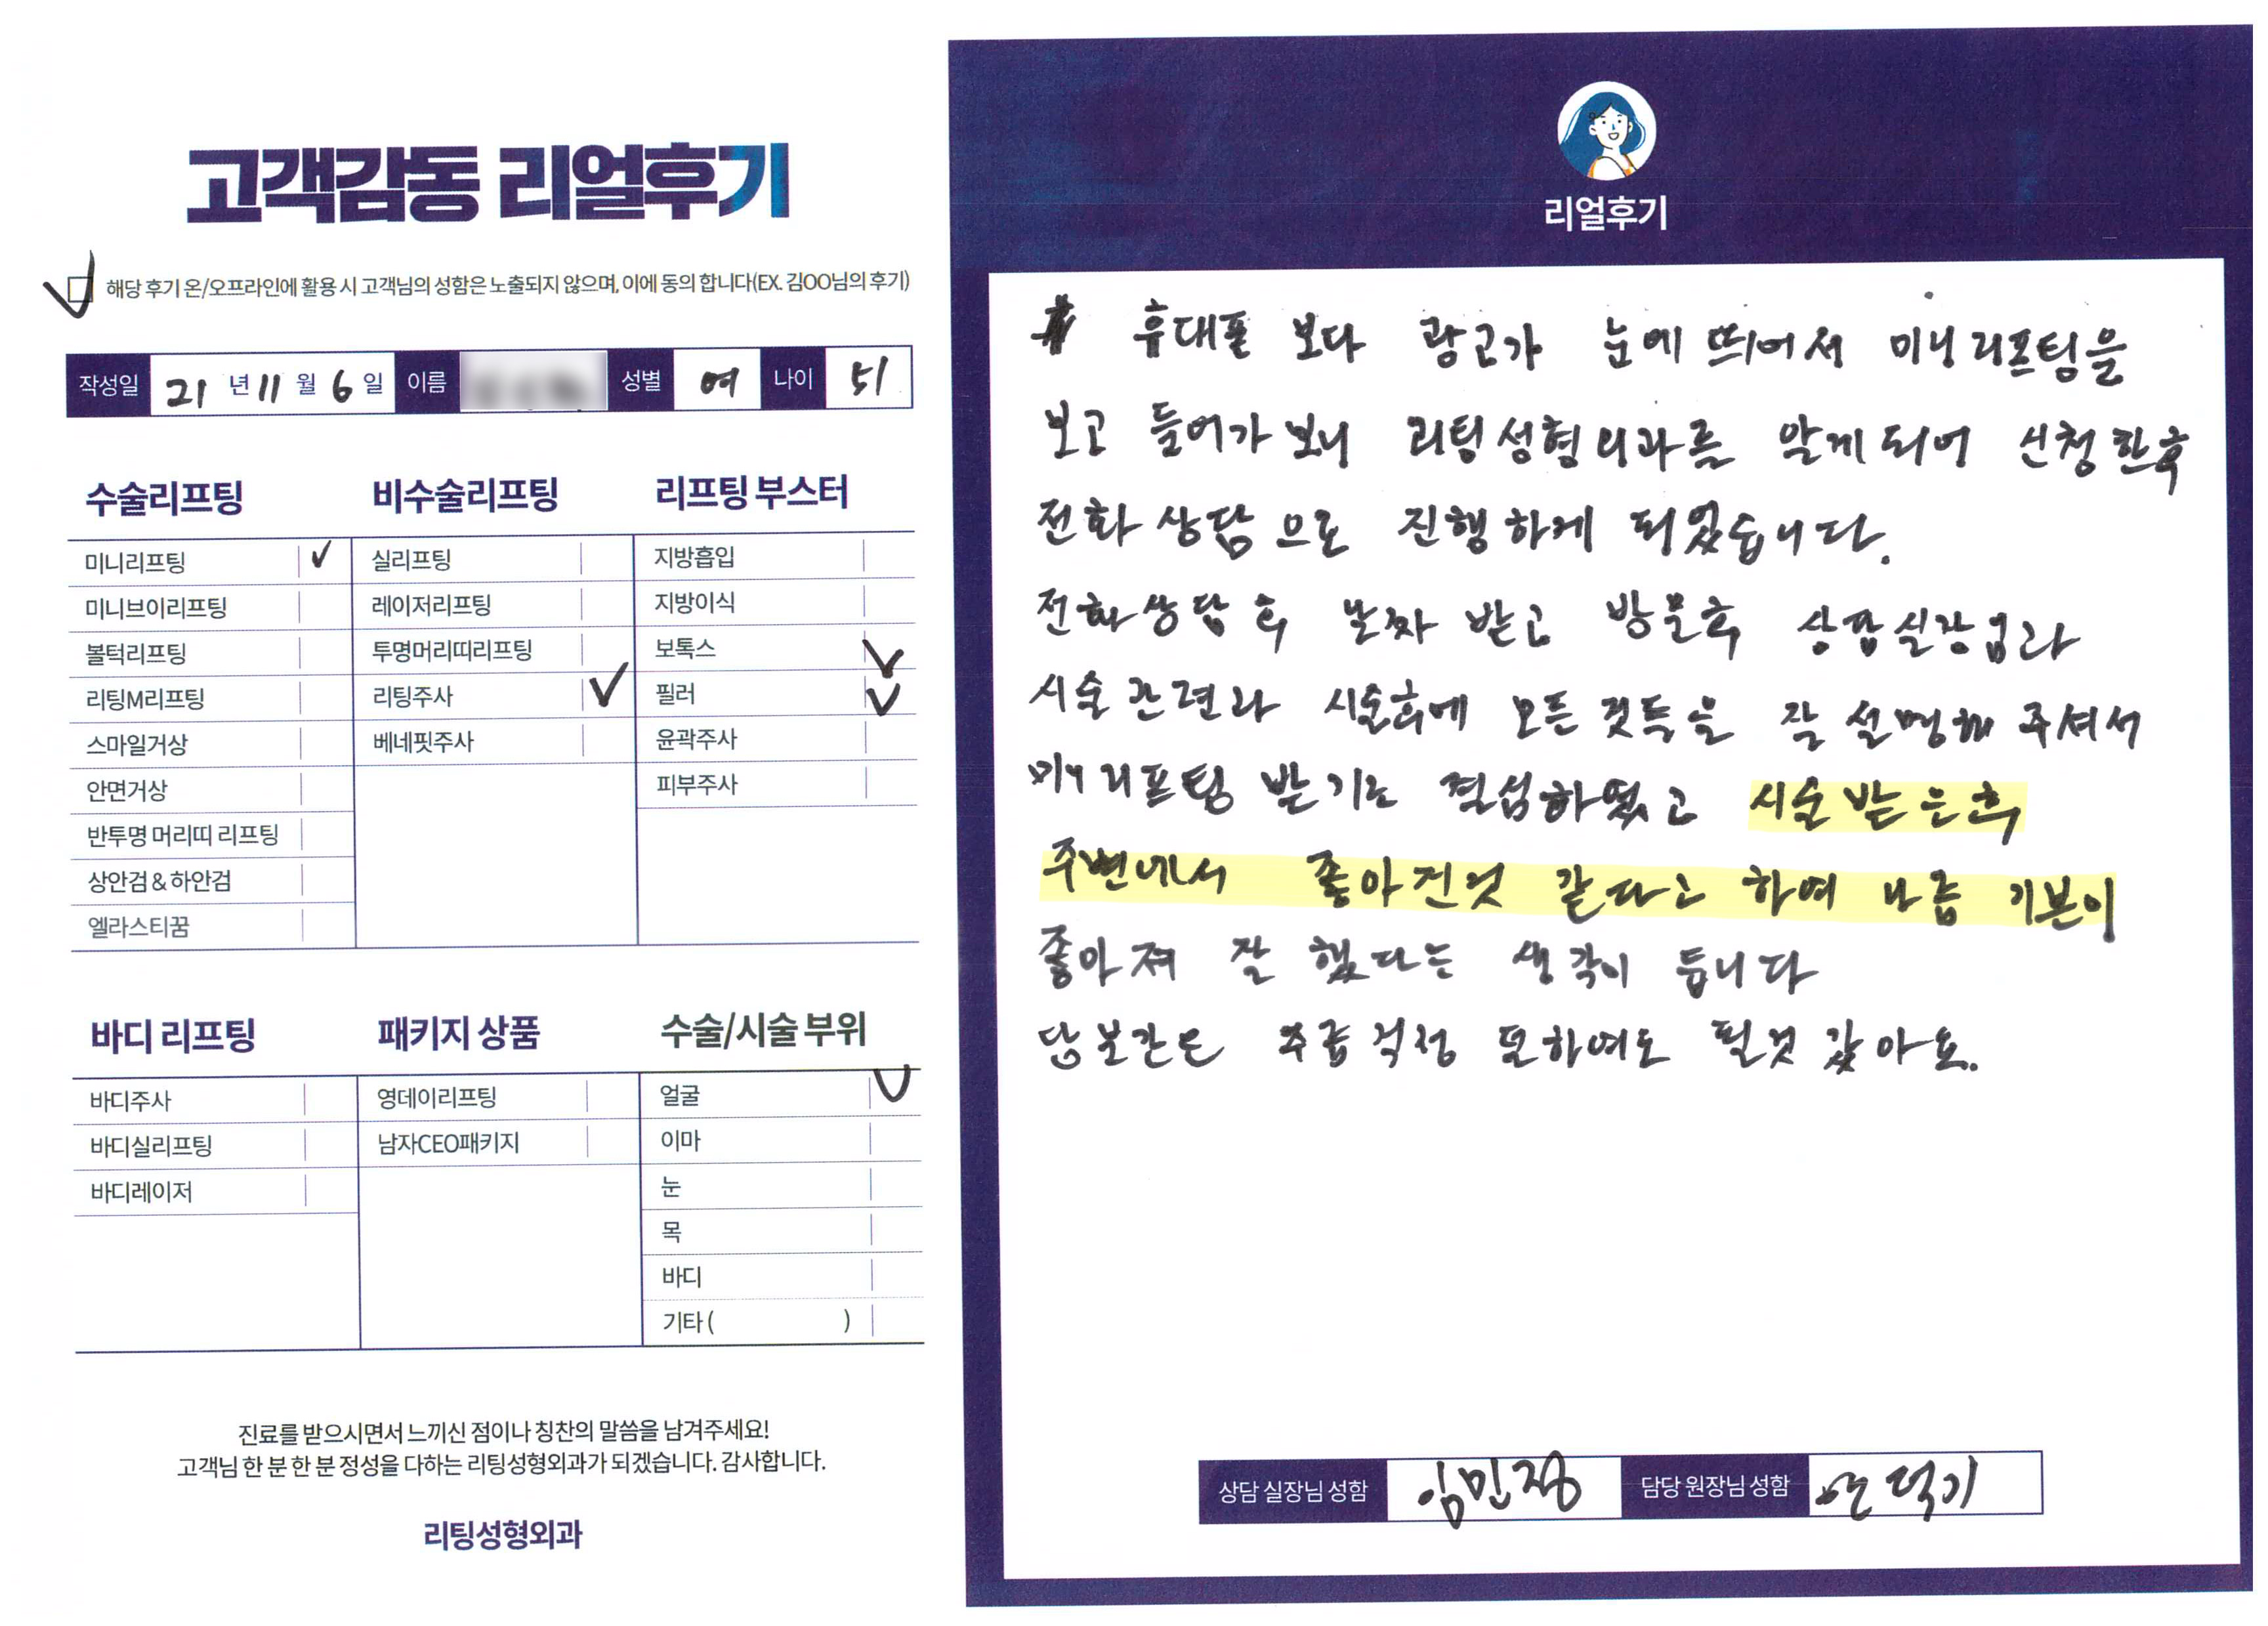 고객감동 리얼후기
해당 후기 온/오프라인에 활용 시 고객님의 성함은 노출되지 않으며, 이에 동의 합니다(EX. 김OO님의 후기)
작성일 21 년 11 월 6 일 이름 성별 여 나이 51
수술리프팅 비수술리프팅 리프팅 부스터
미니리프팅 ✓ 실리프팅 지방흡입
미니브이리프팅 레이저리프팅 지방이식
볼턱리프팅 투명머리띠리프팅 보톡스 ✓
리팅M리프팅 리팅주사 ✓ 필러 ✓
스마일거상 베네핏주사 윤곽주사
안면거상 피부주사
반투명 머리띠 리프팅
상안검 & 하안검
엘라스티꿈
바디 리프팅 패키지 상품 수술/시술 부위
바디주사 영데이리프팅 얼굴 ✓
바디실리프팅 남자CEO패키지 이마
바디레이저 눈
목
바디
기타 ( )
진료를 받으시면서 느끼신 점이나 칭찬의 말씀을 남겨주세요!
고객님 한 분 한 분 정성을 다하는 리팅성형외과가 되겠습니다. 감사합니다.
리팅성형외과
리얼후기
휴대폰 보다 광고가 눈에 띄어서 미니리프팅을
보고 들어가 보니 리팅성형외과를 알게되어 신청한후
전화상담으로 진행하게 되었습니다.
전화상담 후 날짜 받고 방문후 상담실장님과
시술관련과 시술후에 모든것들을 잘 설명해 주셔서
미니리프팅 받기로 결심하였고 시술 받은후
주변에서 좋아진것 같다고 하여 나름 기분이
좋아져 잘 했다는 생각이 듭니다
당분간은 주름걱정 안하여도 될것 같아요.
상담 실장님 성함 임민정 담당 원장님 성함 덕기